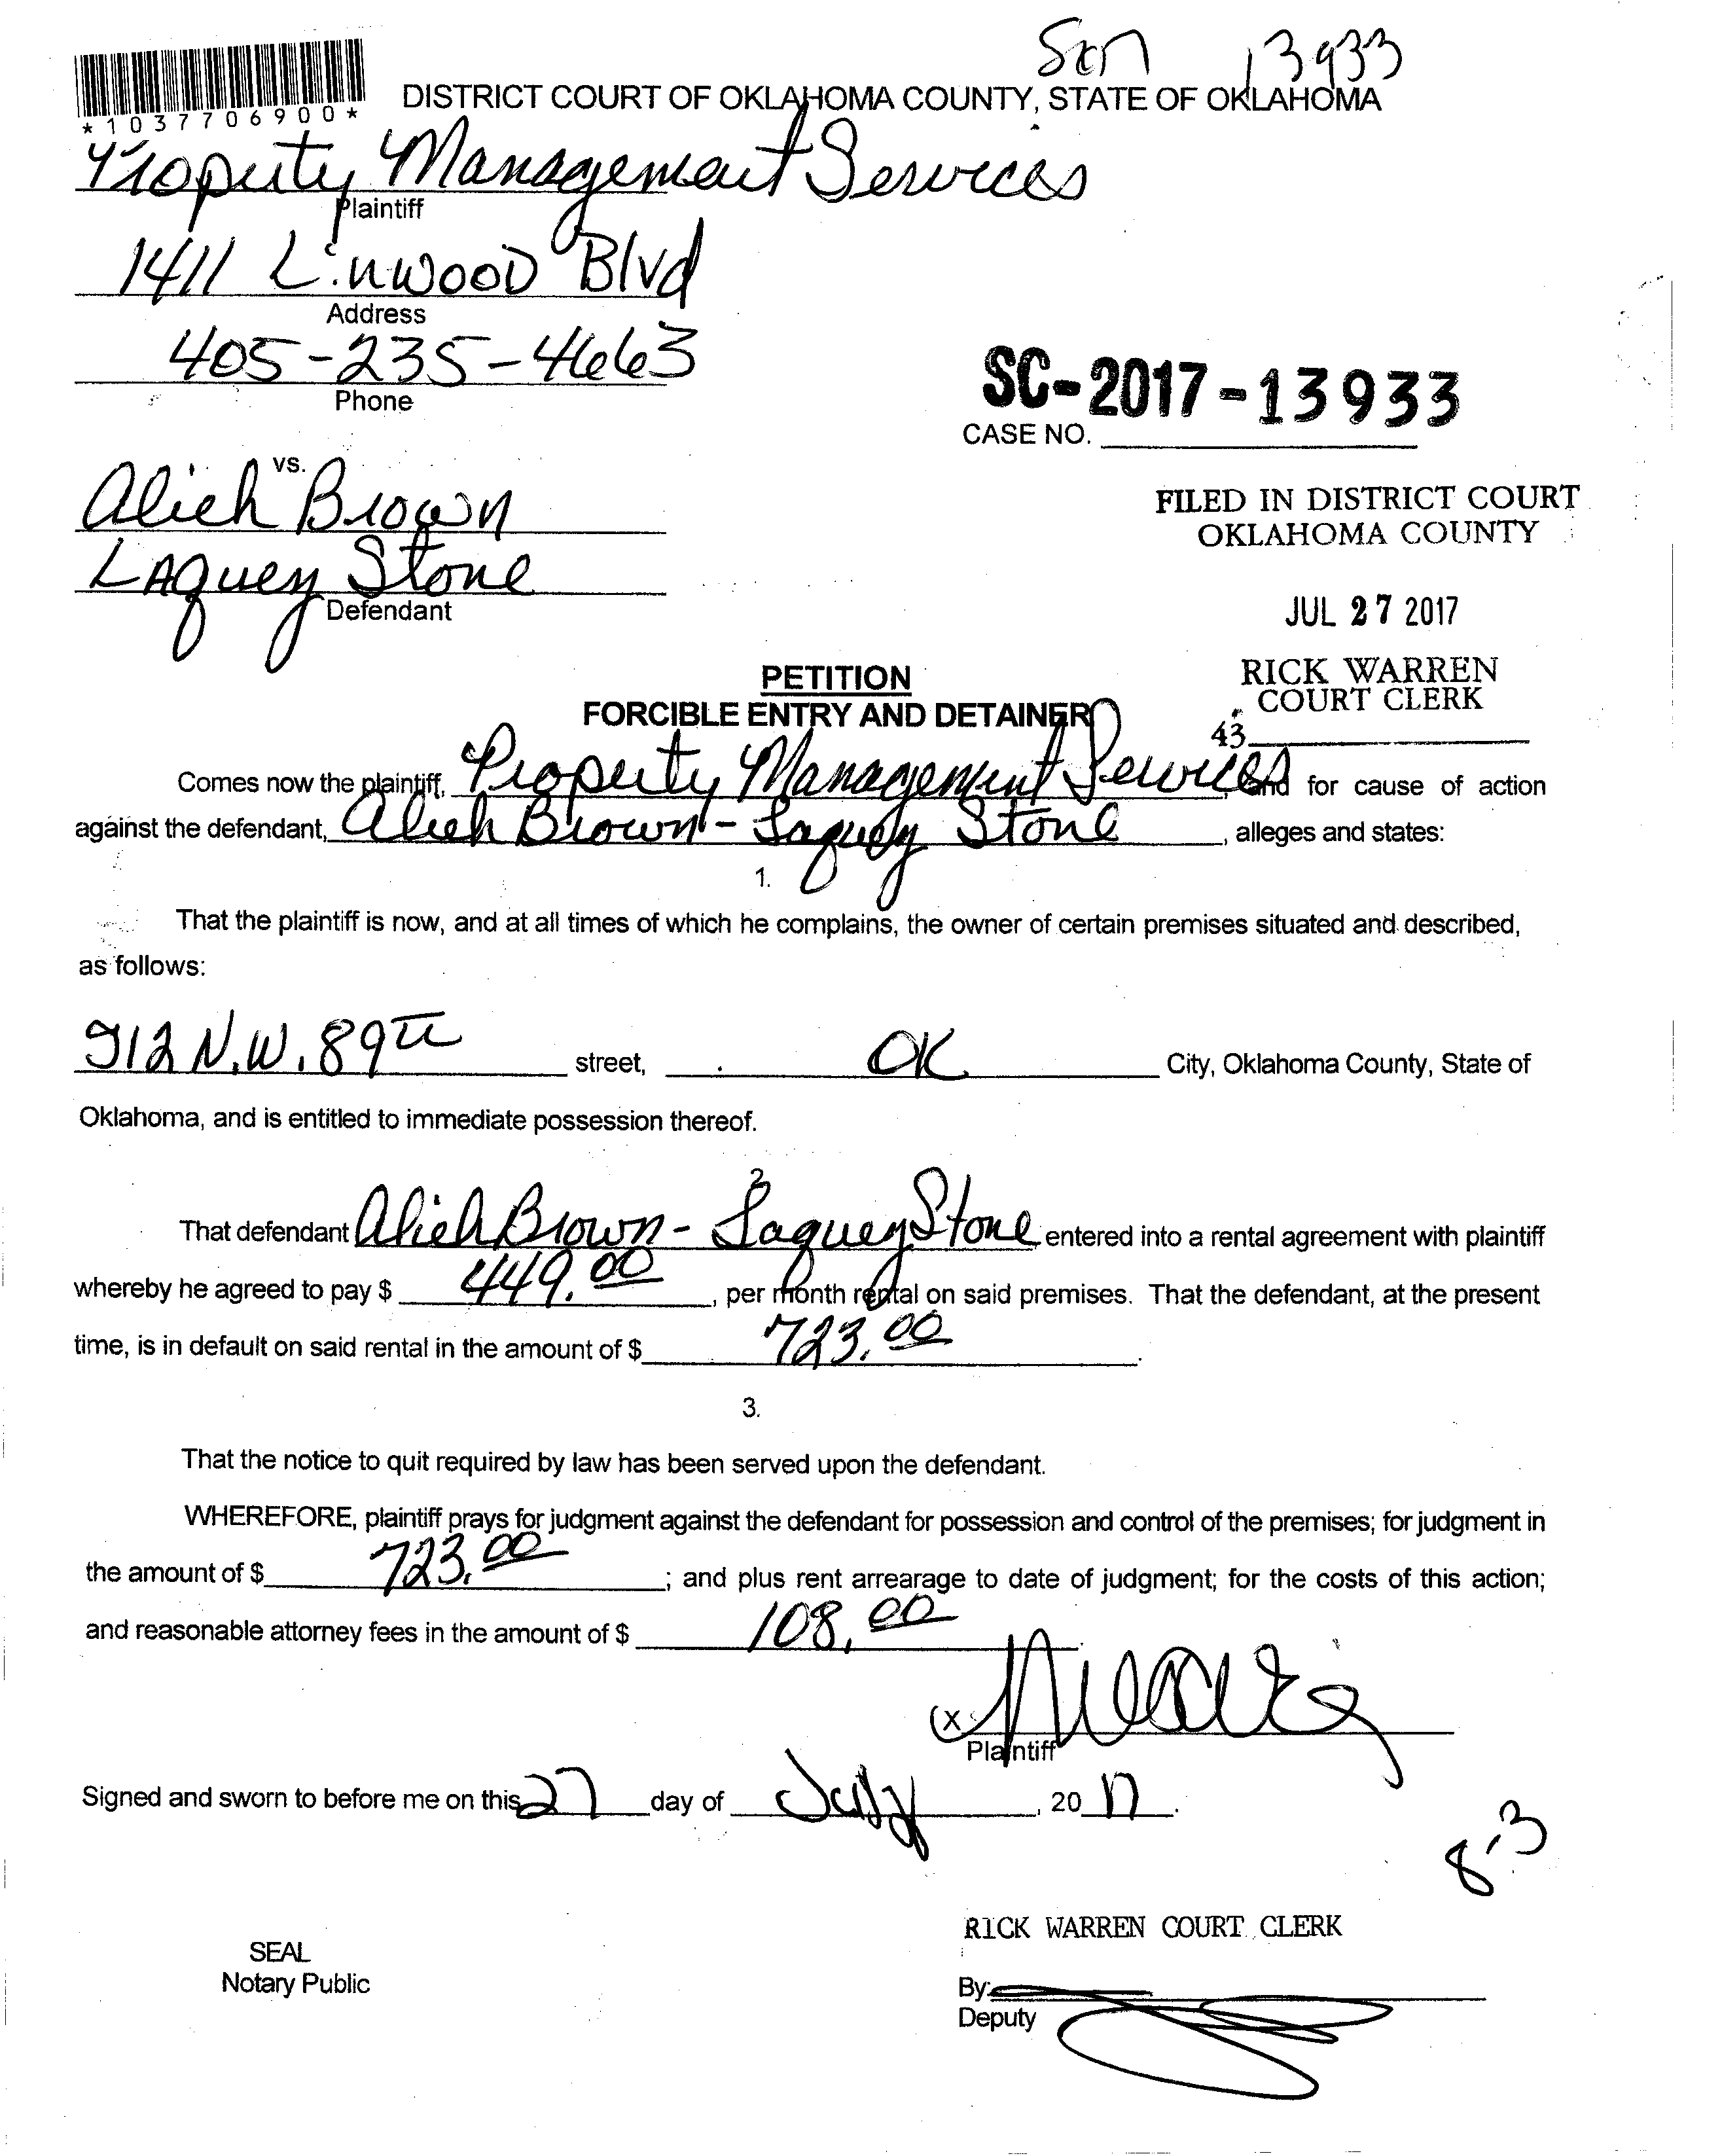 13933
*1037706900*
DISTRICT COURT OF OKLAHOMA COUNTY, STATE OF OKLAHOMA
Property Management Services
Plaintiff
1411 Linwood Blvd
Address
405-235-4663
Phone
SC-2017-13933
CASE NO.
vs.
Alieh Brown
Laquey Stone
Defendant
FILED IN DISTRICT COURT
OKLAHOMA COUNTY
JUL 27 2017
RICK WARREN
COURT CLERK
43
PETITION
FORCIBLE ENTRY AND DETAINER
Comes now the plaintiff, Property Management Services, and for cause of action
against the defendant, Alieh Brown - Laquey Stone, alleges and states:
1.
That the plaintiff is now, and at all times of which he complains, the owner of certain premises situated and described,
as follows:
912 N.W. 89th street, OK City, Oklahoma County, State of
Oklahoma, and is entitled to immediate possession thereof.
2.
That defendant Alieh Brown - Laquey Stone entered into a rental agreement with plaintiff
whereby he agreed to pay $ 449.00, per month rental on said premises. That the defendant, at the present
time, is in default on said rental in the amount of $ 723.00.
3.
That the notice to quit required by law has been served upon the defendant.
WHEREFORE, plaintiff prays for judgment against the defendant for possession and control of the premises; for judgment in
the amount of $ 723.00; and plus rent arrearage to date of judgment; for the costs of this action;
and reasonable attorney fees in the amount of $ 108.00
(x
Plaintiff
Signed and sworn to before me on this 27 day of July, 20 17.
8-3
RICK WARREN COURT CLERK
SEAL
Notary Public
By:
Deputy